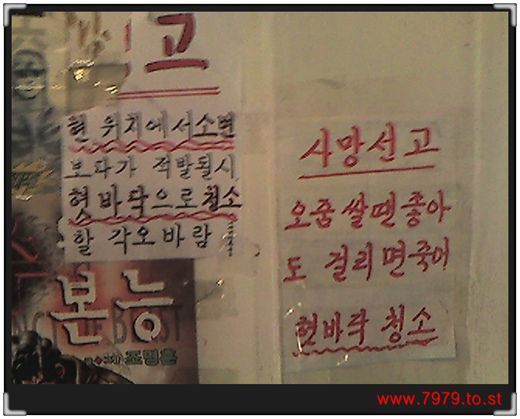 경고
현 위치에서 소변
보다가 적발될시
혓바닥으로 청소
할 각오 바람
본능
사망선고
오줌 쌀땐 좋아
도 걸리면 죽어
혓바닥 청소
www.7979.to.st